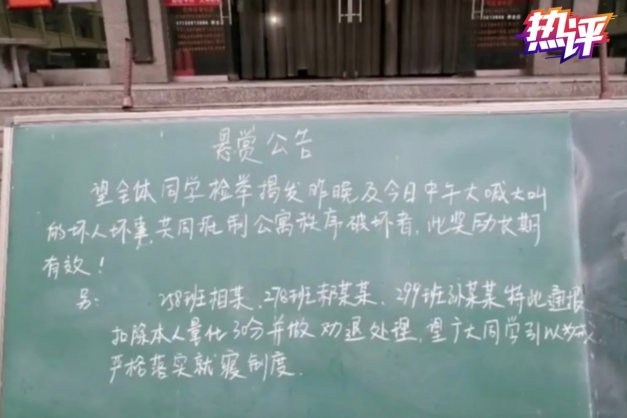 热评
悬赏公告
望全体同学检举揭发昨晚及今日中午大喊大叫
的坏人坏事,共同抵制公寓秩序破坏者,此奖励长期
有效!
另: 258班相某、278班郑某某、299班孙某某特此通报
扣除本人量化30分并做劝退处理,望广大同学引以为戒,
严格落实就寝制度.